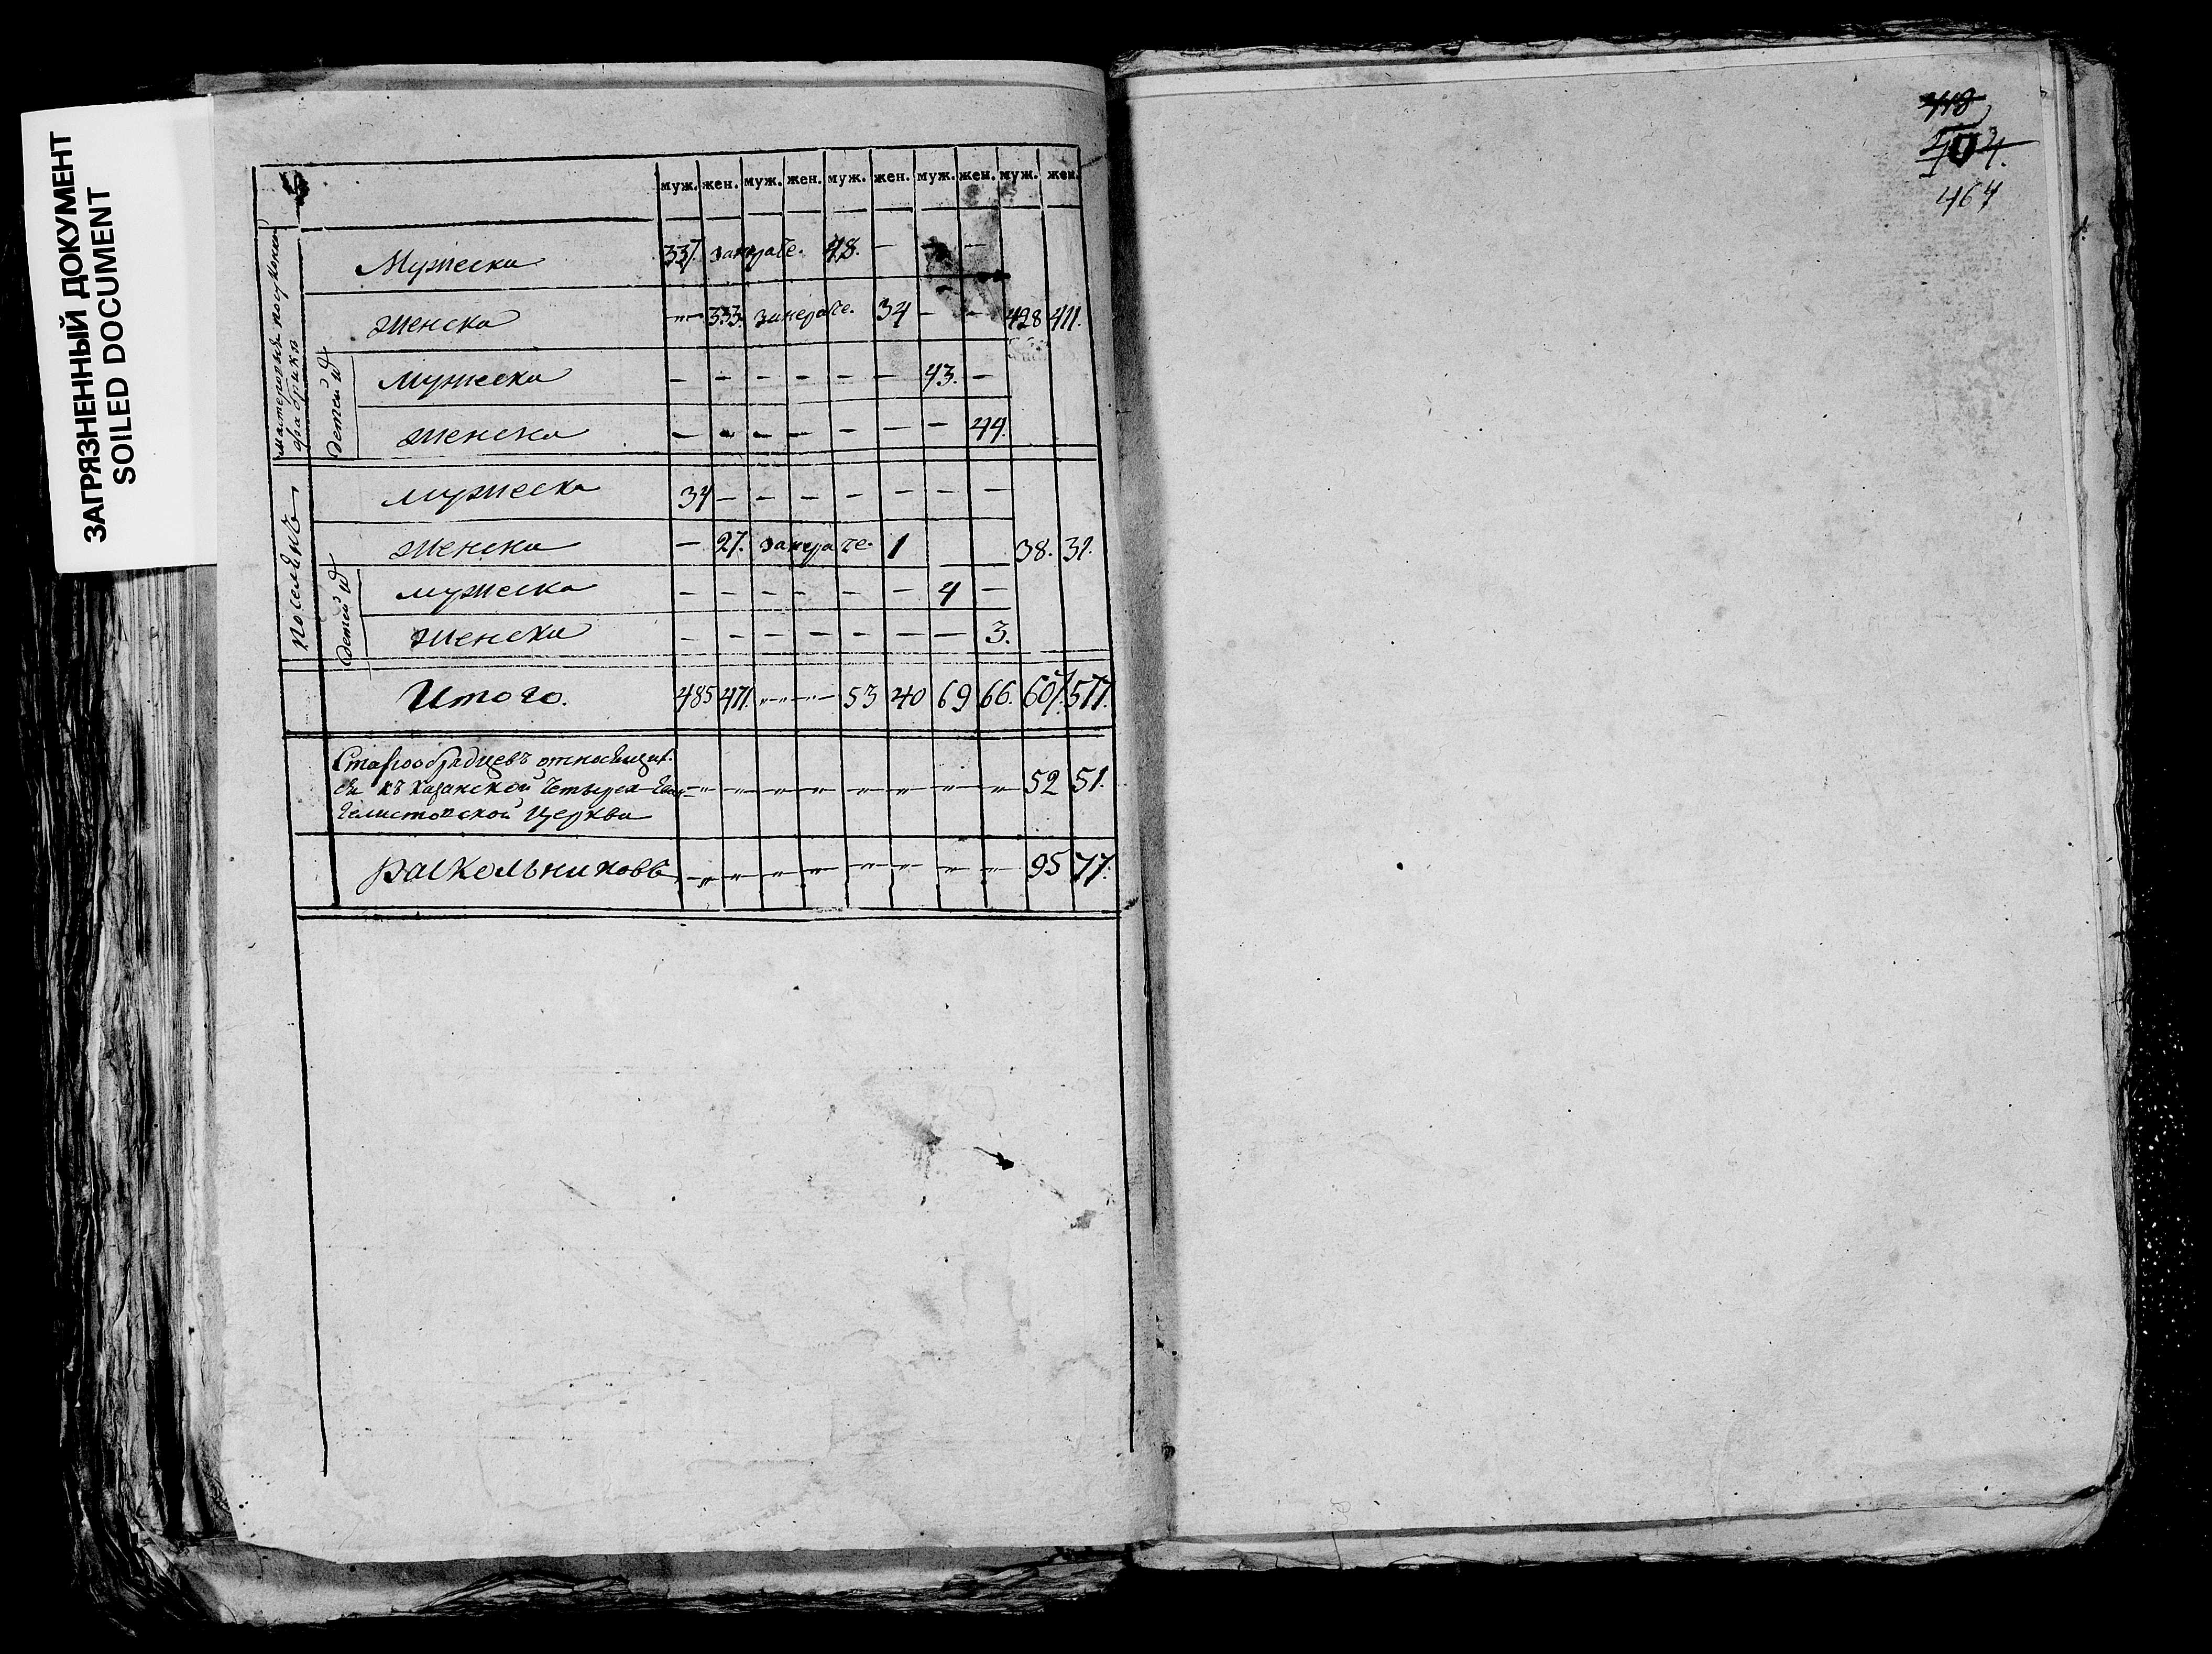 ЗАГРЯЗНЕННЫЙ ДОКУМЕНТ
SOILED DOCUMENT
муж. жен. муж. жен. муж. жен. муж. жен. муж. жен.
фабрики
Мужеска 337. 48. — — —
Женска —„— 333. 34 — — 428 411.
Детей их
Мужеска — — — — — — 43. —
Женска — — — — — — — 44.
Поселянъ
Мужеска 34 — — — — — — —
Женска — 27. 1 38. 31.
Детей их
мужеска — — — — — — 4 —
Женска — — — — — — — 3.
Итого. 485 471. —„—„— 53 40 69 66. 607. 577.
Старообрядцевъ относящих
ся къ казанской Четырех Еван
гелистовской Церкви —„—„—„—„—„—„—„— 52 51.
Раскольниковъ —„—„—„—„—„—„—„— 95 77.
418
404.
464